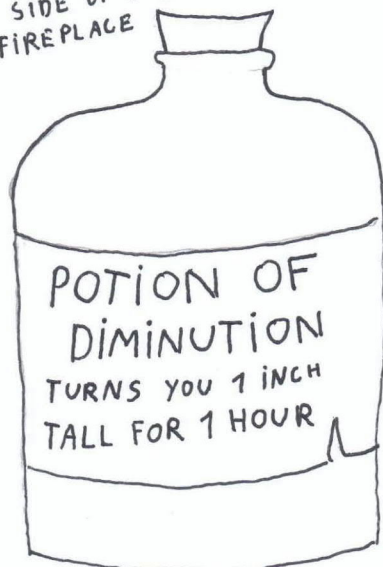 SIDE
FIREPLACE
POTION OF
DIMINUTION
TURNS YOU 1 INCH
TALL FOR 1 HOUR